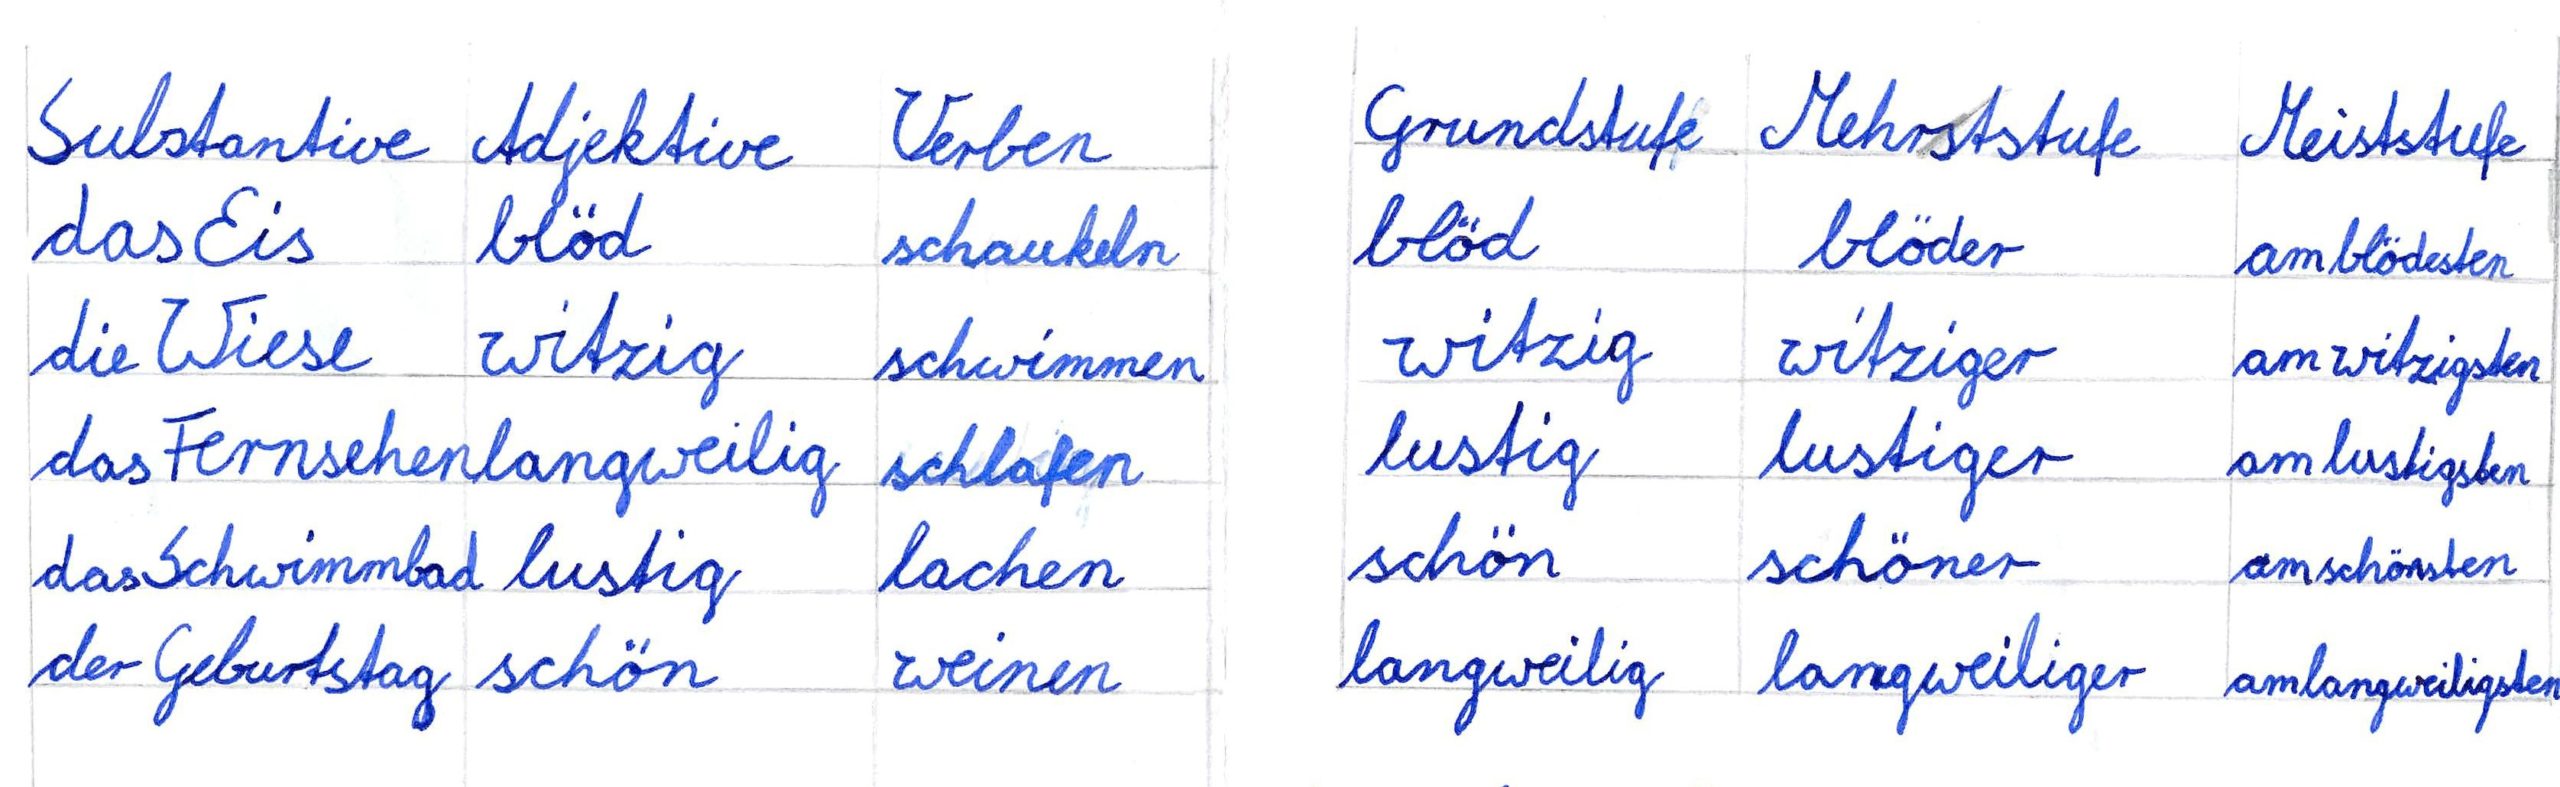 Substantive Adjektive Verben
das Eis blöd schaukeln
die Wiese witzig schwimmen
das Fernsehen langweilig schlafen
das Schwimmbad lustig lachen
der Geburtstag schön weinen
Grundstufe Mehrststufe Meiststufe
blöd blöder am blödesten
witzig witziger am witzigsten
lustig lustiger am lustigsten
schön schöner am schönsten
langweilig langweiliger am langweiligsten